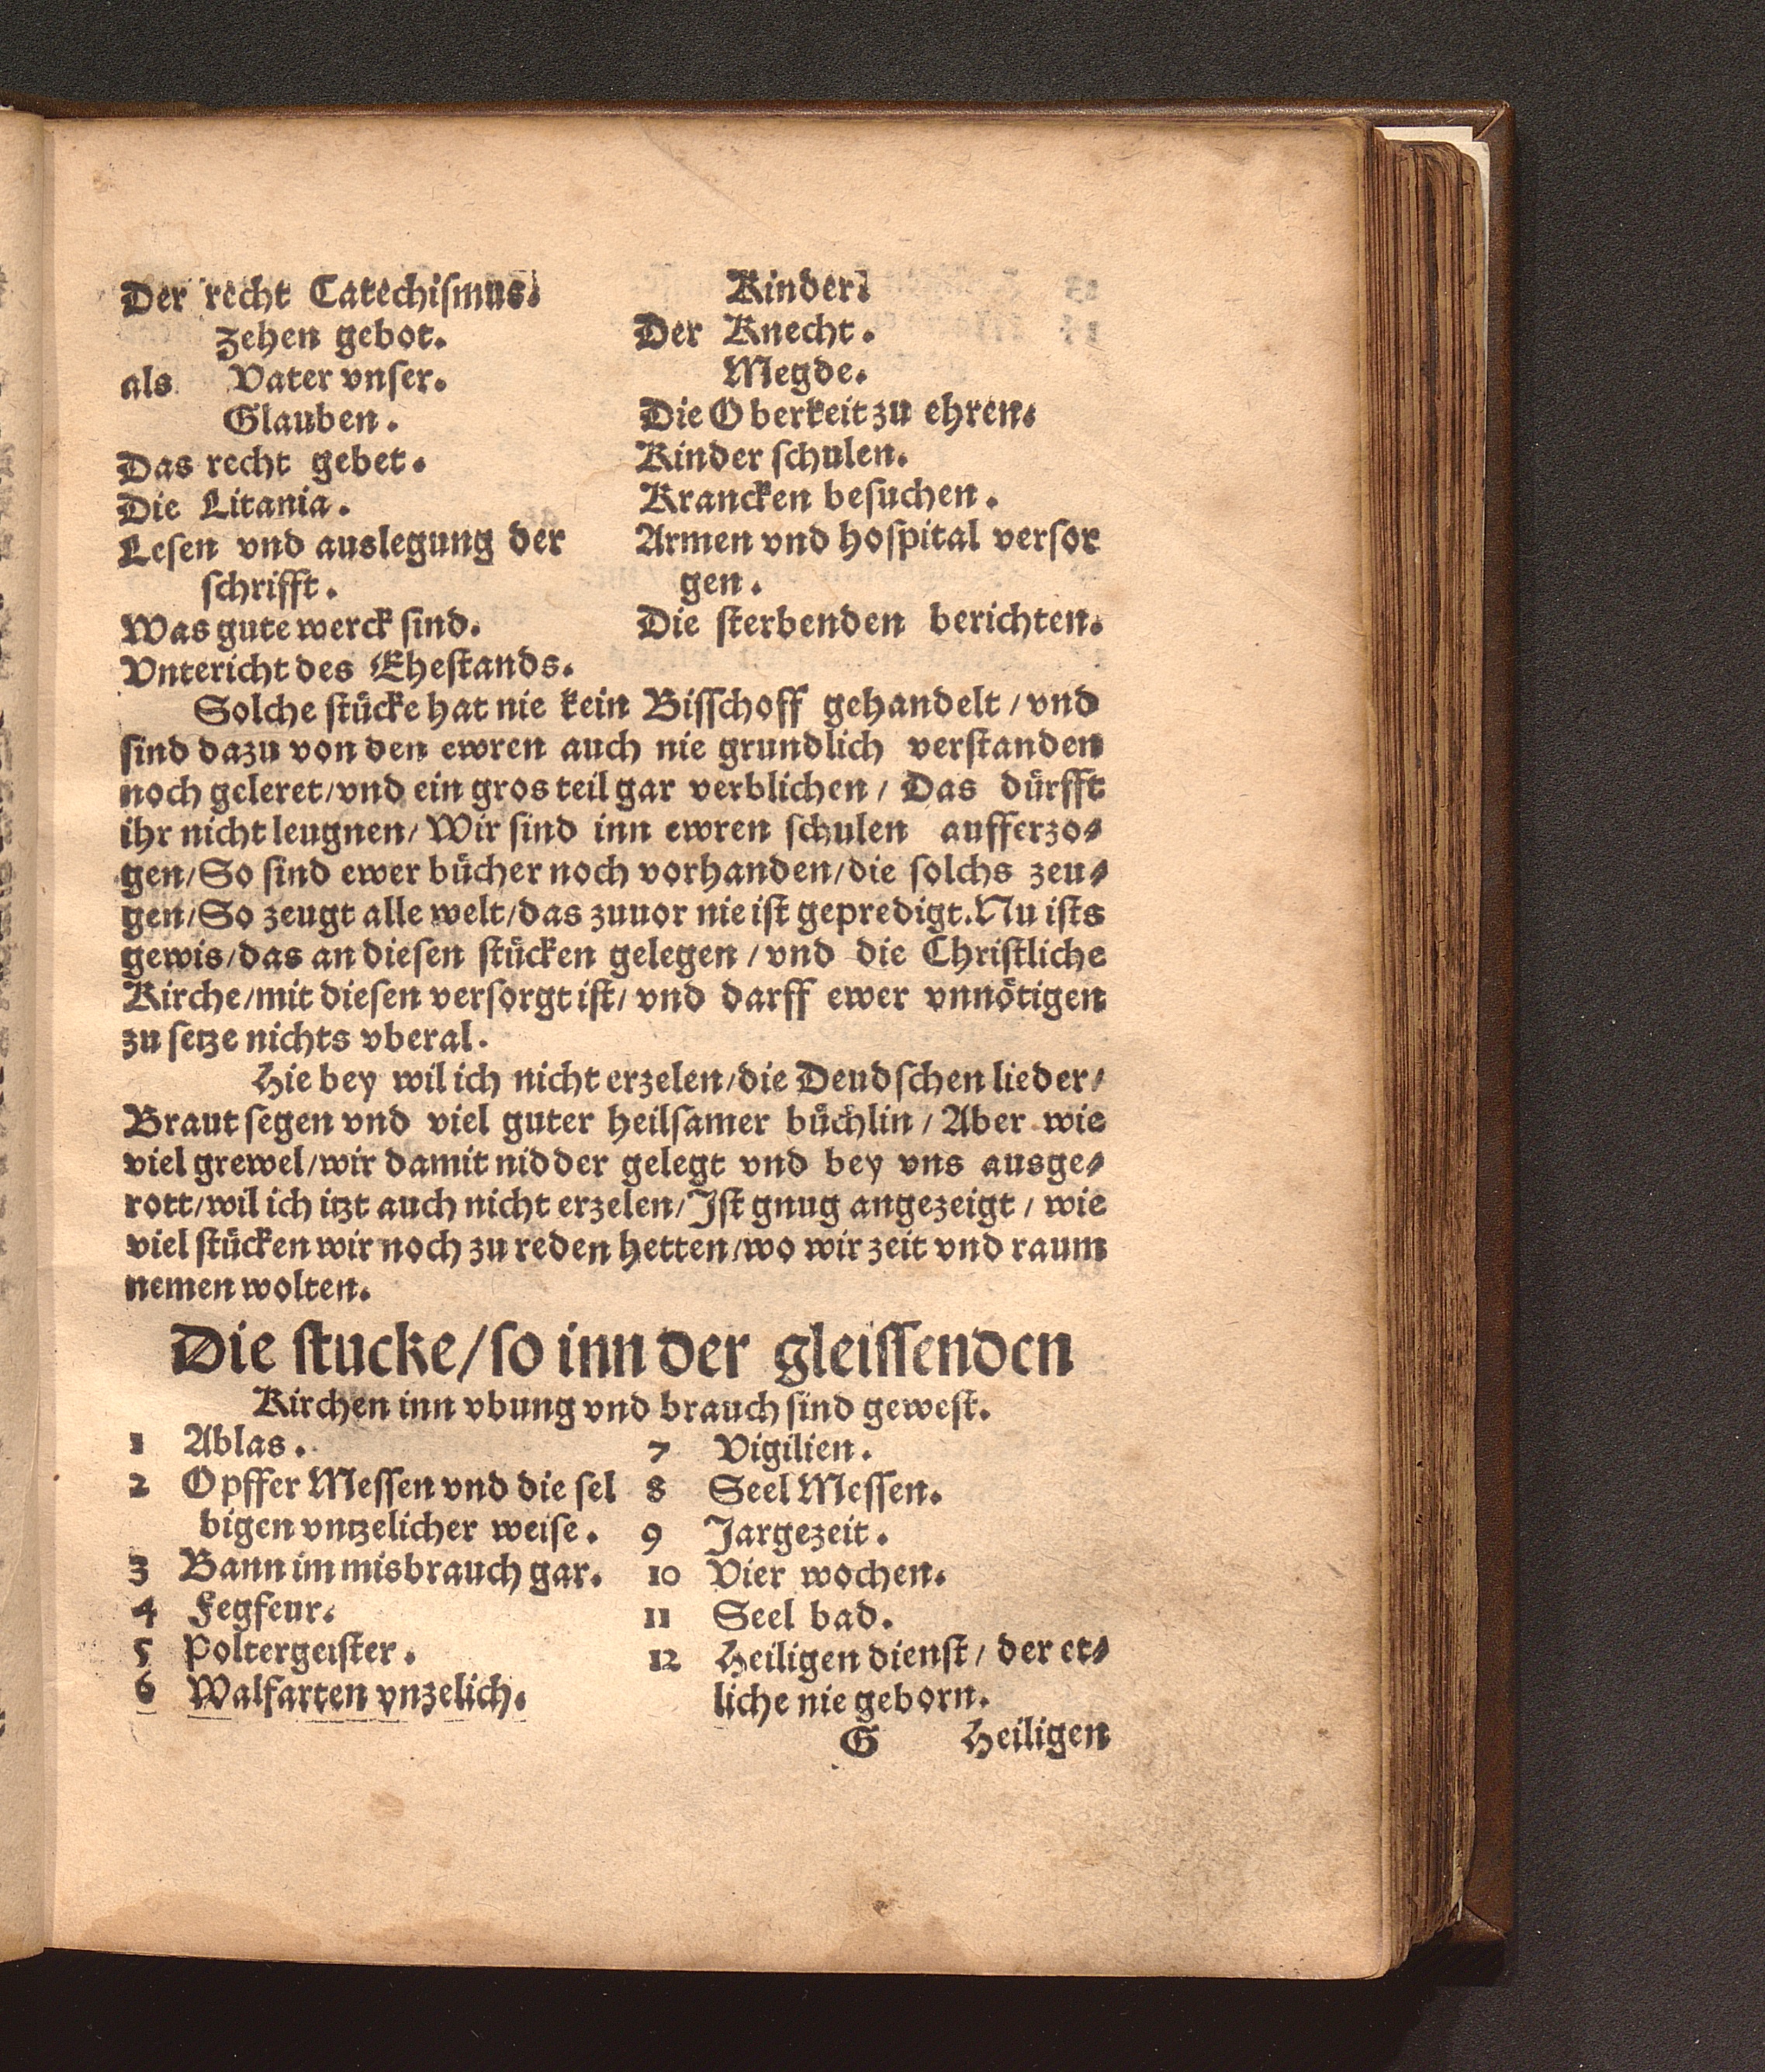 Der recht Catechismus.
Zehen gebot.
als Vater vnser.
Glauben.
Das recht gebet.
Die Litania.
Lesen vnd auslegung der
schrifft.
Was gute werck sind.
Vntericht des Ehestands.
Kinder.
Der Knecht.
Megde.
Die Oberkeit zu ehren.
Kinder schulen.
Krancken besuchen.
Armen vnd hospital versor
gen.
Die sterbenden berichten.
Solche stücke hat nie kein Bisschoff gehandelt / vnd
sind dazu von den ewren auch nie grundlich verstanden
noch geleret/vnd ein gros teil gar verblichen / Das dürfft
ihr nicht leugnen/ Wir sind inn ewren schulen aufferzo⸗
gen/So sind ewer bücher noch vorhanden/die solchs zeu⸗
gen/So zeugt alle welt/das zuuor nie ist gepredigt. Nu ists
gewis/das an diesen stücken gelegen / vnd die Christliche
Kirche/mit diesen versorgt ist/ vnd darff ewer vnnötigen
zu setze nichts vberal.
Hie bey wil ich nicht erzelen/die Deudschen lieder/
Braut segen vnd viel guter heilsamer büchlin / Aber wie
viel grewel/wir damit nidder gelegt vnd bey vns ausge⸗
rott/wil ich itzt auch nicht erzelen/Ist gnug angezeigt / wie
viel stücken wir noch zu reden hetten/wo wir zeit vnd raum
nemen wolten.
Die stucke/so inn der gleissenden
Kirchen inn vbung vnd brauch sind gewest.
1 Ablas.
2 Opffer Messen vnd die sel
bigen vntzelicher weise.
3 Bann im misbrauch gar.
4 Fegfeur.
5 Poltergeister.
6 Walfarten vnzelich.
7 Vigilien.
8 Seel Messen.
9 Jargezeit.
10 Vier wochen.
11 Seel bad.
12 Heiligen dienst / der et⸗
liche nie geborn.
G Heiligen